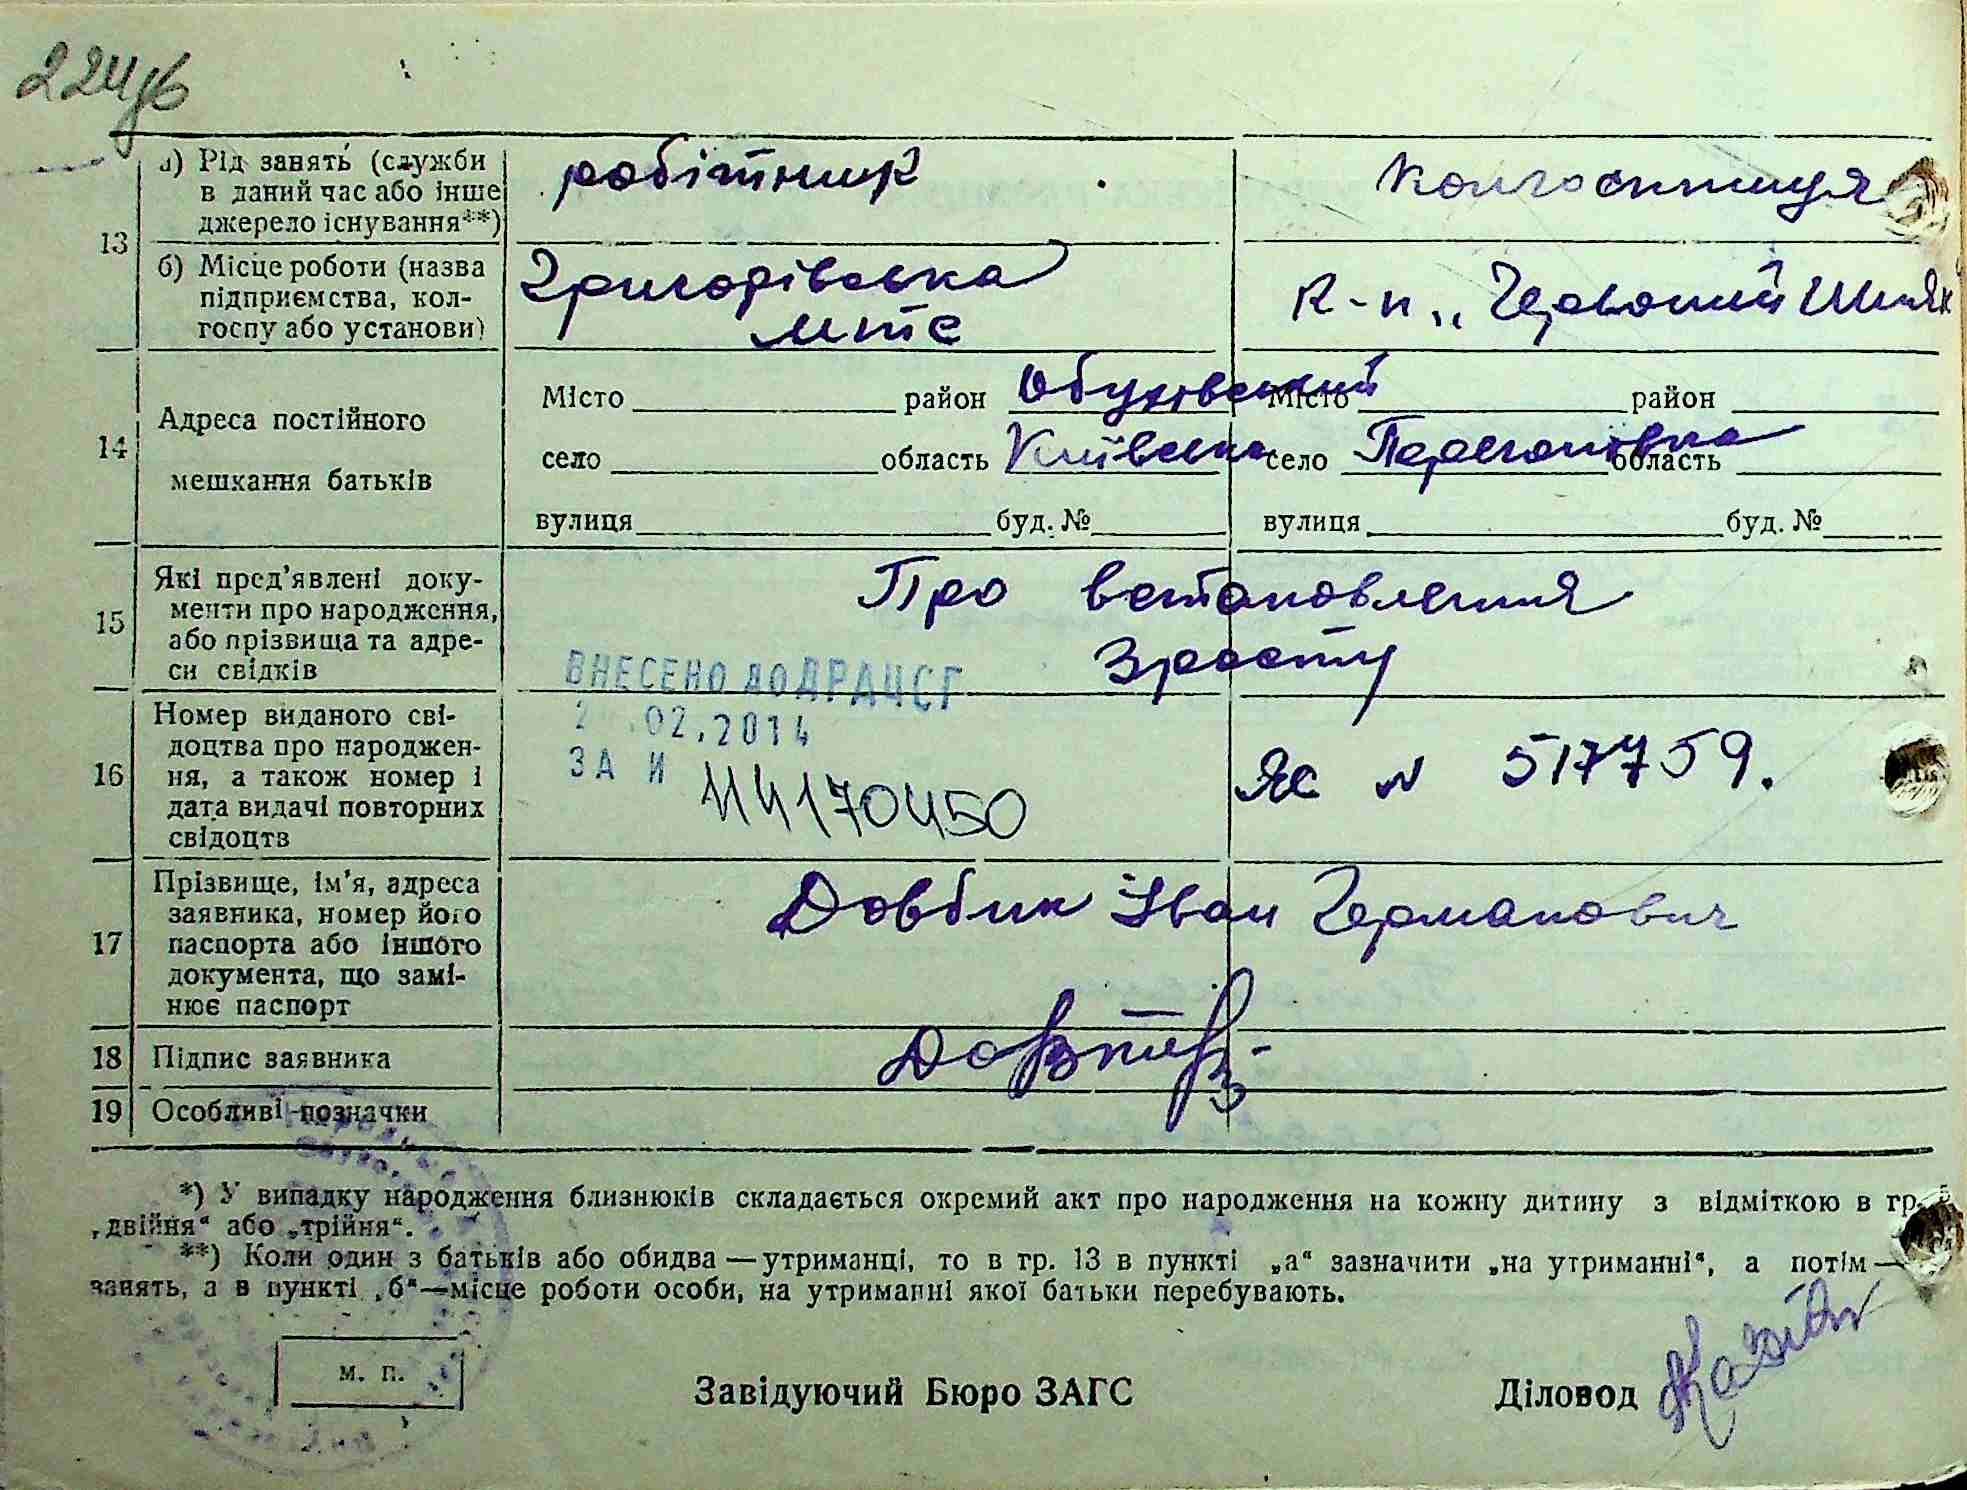 224/6
13
а) Рід занять (служби
в даний час або інше
джерело існування**)
робітник
колгоспниця
б) Місце роботи (назва
підприємства, кол-
госпу або установи)
Григорівська
МТС
к-п „Червоний Шлях
14
Адреса постійного
мешкання батьків
Місто район Обухівський
село область Київська
вулиця буд. №
Місто район
село Перегонівка область
вулиця буд. №
15
Які пред'явлені доку-
менти про народження,
або прізвища та адре-
си свідків
Про встановлення
Зросту
16
Номер виданого сві-
доцтва про народжен-
ня, а також номер і
дата видачі повторних
свідоцтв
ВНЕСЕНО ДО ДРАЦСГ
2 .02.2014
ЗА И
114170450
ЯС N 517759.
17
Прізвище, ім'я, адреса
заявника, номер його
паспорта або іншого
документа, що замі-
нює паспорт
Довбик Іван Германович
18
Підпис заявника
19
Особливі позначки
*) У випадку народження близнюків складається окремий акт про народження на кожну дитину з відміткою в гр. 5
„двійня“ або „трійня“.
**) Коли один з батьків або обидва — утриманці, то в гр. 13 в пункті „а“ зазначити „на утриманні“, а потім —
занять, а в пункті „б“—місце роботи особи, на утриманні якої батьки перебувають.
м. п.
Завідуючий Бюро ЗАГС
Діловод